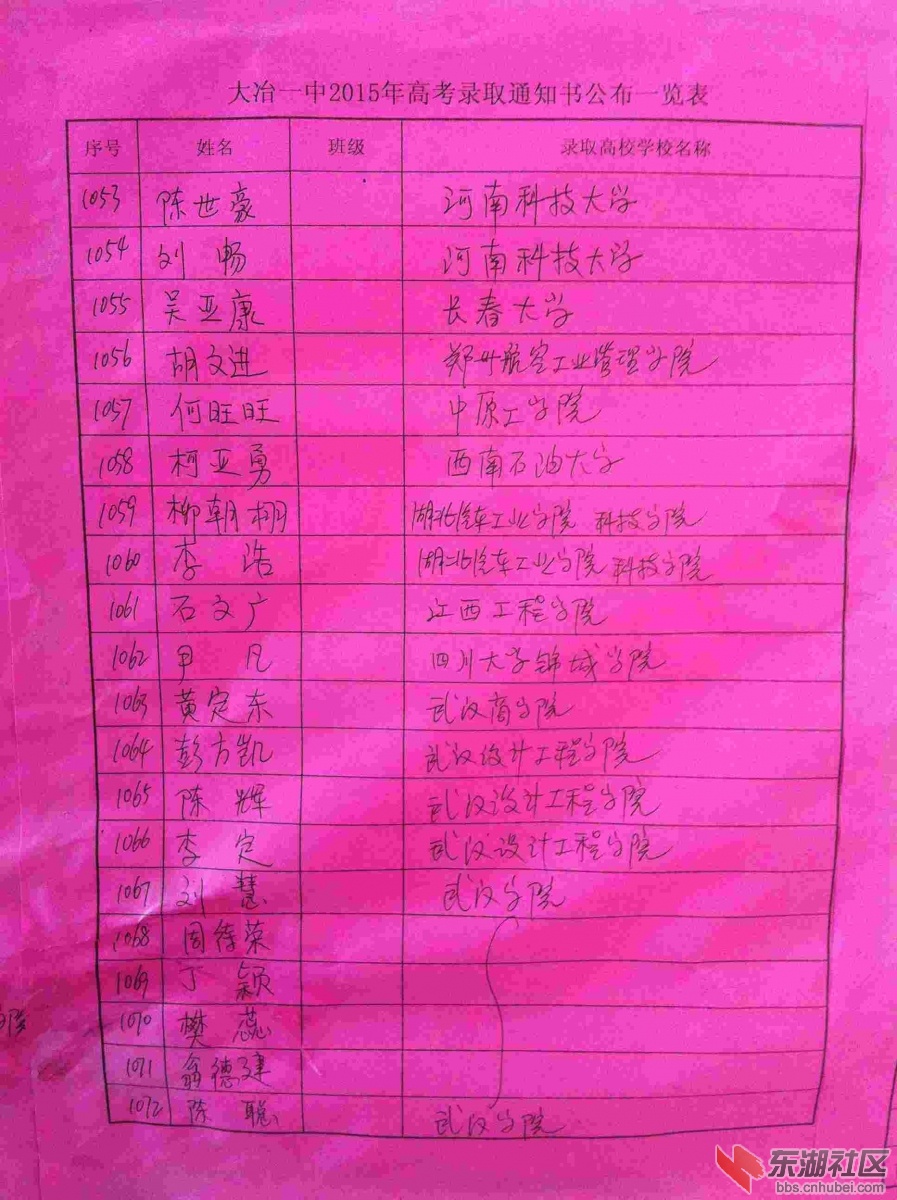 大冶一中2015年高考录取通知书公布一览表
序号 姓名 班级 录取高校学校名称
1053 陈世豪 河南科技大学
1054 刘畅 河南科技大学
1055 吴亚康 长春大学
1056 胡文进 郑州航空工业管理学院
1057 何旺旺 中原工学院
1058 柯亚勇 西南石油大学
1059 柳朝栩 湖北汽车工业学院 科技学院
1060 李浩 湖北汽车工业学院 科技学院
1061 石文广 江西工程学院
1062 尹凡 四川大学锦城学院
1063 黄定东 武汉商学院
1064 彭方凯 武汉设计工程学院
1065 陈辉 武汉设计工程学院
1066 李定 武汉设计工程学院
1067 刘慧 武汉学院
1068 周待荣
1069 丁颖
1070 樊蕊
1071 翁德建
1072 陈聪 武汉学院
学院
东湖社区
bbs.cnhubei.com